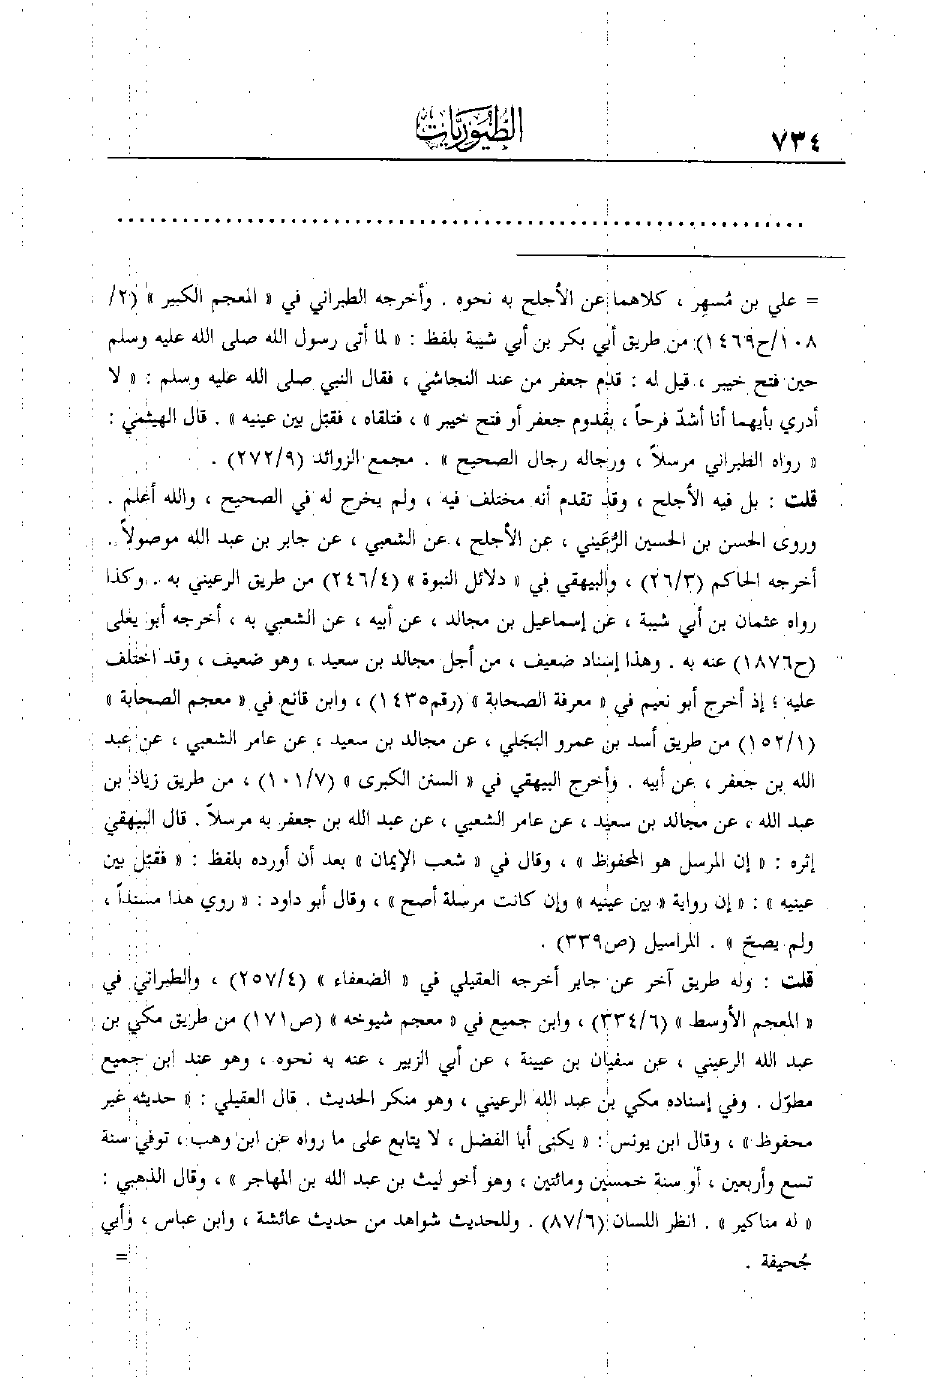 ٧٣٤
الطيوريات
= علي بن مُسهِر ، كلاهما عن الأجلح به نحوه . وأخرجه الطبراني في « المعجم الكبير » (٢/
١٠٨/ح١٤٦٩) من طريق أبي بكر بن أبي شيبة بلفظ : « لما أتى رسول الله صلى الله عليه وسلم
حين فتح خيبر ، قيل له : قدِم جعفر من عند النجاشي ، فقال النبي صلى الله عليه وسلم : « لا
أدري بأيهما أنا أشدّ فرحاً ، بقدوم جعفر أو فتح خيبر » ، فتلقاه ، فقبّل بين عينيه » . قال الهيثمي :
« رواه الطبراني مرسلاً ، ورجاله رجال الصحيح » . مجمع الزوائد (٢٧٢/٩) .
قلت : بل فيه الأجلح ، وقد تقدم أنه مختلف فيه ، ولم يخرج له في الصحيح ، والله أعلم .
وروى الحسن بن الحسين الرُّعَيني ، عن الأجلح ، عن الشعبي ، عن جابر بن عبد الله موصولاً .
أخرجه الحاكم (٢٦/٣) ، والبيهقي في « دلائل النبوة » (٢٤٦/٤) من طريق الرعيني به . وكذا
رواه عثمان بن أبي شيبة ، عن إسماعيل بن مجالد ، عن أبيه ، عن الشعبي به ، أخرجه أبو يعلى
(ح١٨٧٦) عنه به . وهذا إسناد ضعيف ، من أجل مجالد بن سعيد ، وهو ضعيف ، وقد اختلف
عليه ؛ إذ أخرج أبو نعيم في « معرفة الصحابة » (رقم١٤٣٥) ، وابن قانع في « معجم الصحابة »
(١٥٢/١) من طريق أسد بن عمرو البَجَلي ، عن مجالد بن سعيد ، عن عامر الشعبي ، عن عبد
الله بن جعفر ، عن أبيه . وأخرج البيهقي في « السنن الكبرى » (١٠١/٧) ، من طريق زياد بن
عبد الله ، عن مجالد بن سعيد ، عن عامر الشعبي ، عن عبد الله بن جعفر به مرسلاً . قال البيهقي
إثره : « إن المرسل هو المحفوظ » ، وقال في « شعب الإيمان » بعد أن أورده بلفظ : « فقبّل بين
عينيه » : « إن رواية « بين عينيه » وإن كانت مرسلة أصح » ، وقال أبو داود : « روي هذا مسنداً ،
ولم يصحّ » . المراسيل (ص٣٣٩) .
قلت : وله طريق آخر عن جابر أخرجه العقيلي في « الضعفاء » (٢٥٧/٤) ، والطبراني في
« المعجم الأوسط » (٣٣٤/٦) ، وابن جميع في « معجم شيوخه » (ص١٧١) من طريق مكي بن
عبد الله الرعيني ، عن سفيان بن عيينة ، عن أبي الزبير ، عنه به نحوه ، وهو عند ابن جميع
مطوّل . وفي إسناده مكي بن عبد الله الرعيني ، وهو منكر الحديث . قال العقيلي : « حديثه غير
محفوظ » ، وقال ابن يونس : « يكنى أبا الفضل ، لا يتابع على ما رواه عن ابن وهب ، توفي سنة
تسع وأربعين ، أو سنة خمسين ومائتين ، وهو أخو ليث بن عبد الله بن المهاجر » ، وقال الذهبي :
« له مناكير » . انظر اللسان (٨٧/٦) . وللحديث شواهد من حديث عائشة ، وابن عباس ، وأبي
جُحيفة . =